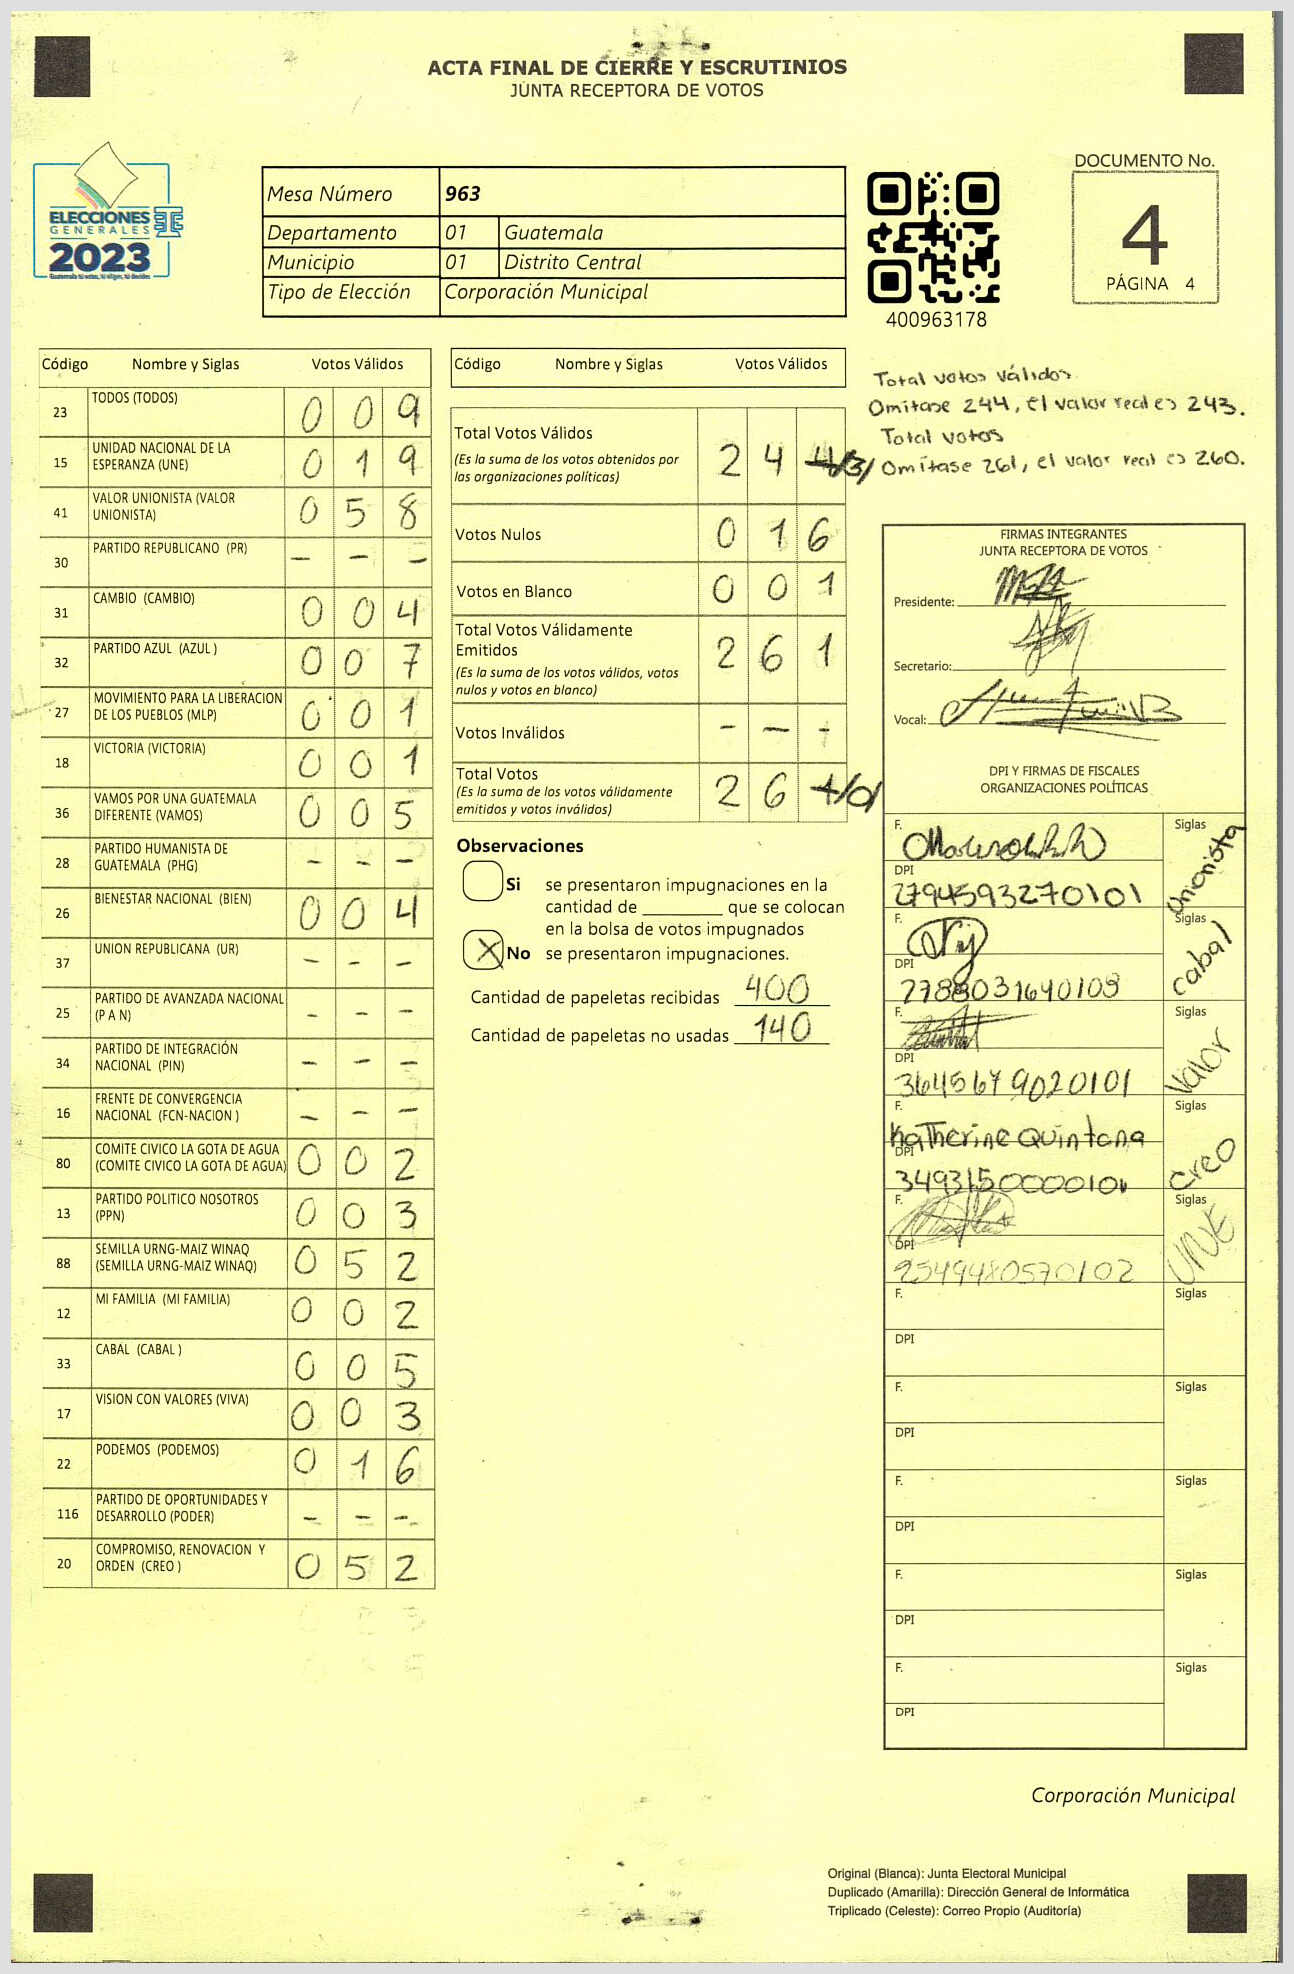 ACTA FINAL DE CIERRE Y ESCRUTINIOS
JUNTA RECEPTORA DE VOTOS
ELECCIONES
GENERALES
2023
Mesa Número 963
Departamento 01 Guatemala
Municipio 01 Distrito Central
Tipo de Elección Corporación Municipal
400963178
DOCUMENTO No.
4
PÁGINA 4
Código Nombre y Siglas Votos Válidos
23 TODOS (TODOS) 0 0 9
15 UNIDAD NACIONAL DE LA ESPERANZA (UNE) 0 1 9
41 VALOR UNIONISTA (VALOR UNIONISTA) 0 5 8
30 PARTIDO REPUBLICANO (PR) - - -
31 CAMBIO (CAMBIO) 0 0 4
32 PARTIDO AZUL (AZUL ) 0 0 7
27 MOVIMIENTO PARA LA LIBERACION DE LOS PUEBLOS (MLP) 0 0 1
18 VICTORIA (VICTORIA) 0 0 1
36 VAMOS POR UNA GUATEMALA DIFERENTE (VAMOS) 0 0 5
28 PARTIDO HUMANISTA DE GUATEMALA (PHG) - - -
26 BIENESTAR NACIONAL (BIEN) 0 0 4
37 UNION REPUBLICANA (UR) - - -
25 PARTIDO DE AVANZADA NACIONAL (P A N) - - -
34 PARTIDO DE INTEGRACIÓN NACIONAL (PIN) - - -
16 FRENTE DE CONVERGENCIA NACIONAL (FCN-NACION ) - - -
80 COMITE CIVICO LA GOTA DE AGUA (COMITE CIVICO LA GOTA DE AGUA) 0 0 2
13 PARTIDO POLITICO NOSOTROS (PPN) 0 0 3
88 SEMILLA URNG-MAIZ WINAQ (SEMILLA URNG-MAIZ WINAQ) 0 5 2
12 MI FAMILIA (MI FAMILIA) 0 0 2
33 CABAL (CABAL ) 0 0 5
17 VISION CON VALORES (VIVA) 0 0 3
22 PODEMOS (PODEMOS) 0 1 6
116 PARTIDO DE OPORTUNIDADES Y DESARROLLO (PODER) - - -
20 COMPROMISO, RENOVACION Y ORDEN (CREO ) 0 5 2
Código Nombre y Siglas Votos Válidos
Total Votos Válidos 2 4 4/3/
(Es la suma de los votos obtenidos por
las organizaciones políticas)
Votos Nulos 0 1 6
Votos en Blanco 0 0 1
Total Votos Válidamente
Emitidos 2 6 1
(Es la suma de los votos válidos, votos
nulos y votos en blanco)
Votos Inválidos - - -
Total Votos 2 6 1/0/
(Es la suma de los votos válidamente
emitidos y votos inválidos)
Observaciones
Si se presentaron impugnaciones en la
cantidad de ________ que se colocan
en la bolsa de votos impugnados
X No se presentaron impugnaciones.
Cantidad de papeletas recibidas 400
Cantidad de papeletas no usadas 140
Total votos válidos
Omitase 244, el valor real es 243.
Total votos
Omítase 261, el valor real es 260.
FIRMAS INTEGRANTES
JUNTA RECEPTORA DE VOTOS
Presidente:
Secretario:
Vocal:
DPI Y FIRMAS DE FISCALES
ORGANIZACIONES POLÍTICAS
F. Siglas Unionista
DPI
2794593270101
F. Siglas cabal
DPI
2788031640108
F. Siglas Valor
DPI
3645679020101
F. Siglas Creo
Katherine Quintana
DPI
3493150000101
F. Siglas UNE
DPI
2549480570102
F. Siglas
DPI
F. Siglas
DPI
F. Siglas
DPI
F. Siglas
DPI
F. Siglas
DPI
Corporación Municipal
Original (Blanca): Junta Electoral Municipal
Duplicado (Amarilla): Dirección General de Informática
Triplicado (Celeste): Correo Propio (Auditoría)